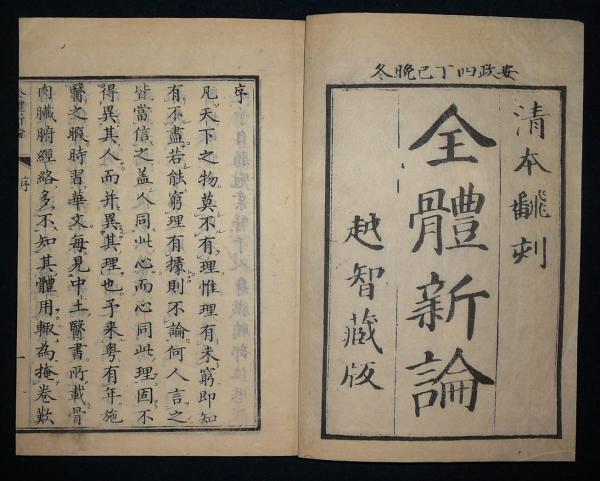 安政四丁巳晩冬
清本翻刻
全體新論
越智藏版
序
凡天下之物莫不有理惟理有未窮即知
有不盡若能窮理有據則不論何人言之
皆當信之蓋人同此心而心同此理固不
得異其人而并異其理也予来粤有年施
醫之暇時習華文每見中土醫書所載骨
肉臟腑經絡多不知其體用輒為掩卷歎
全體新論
序